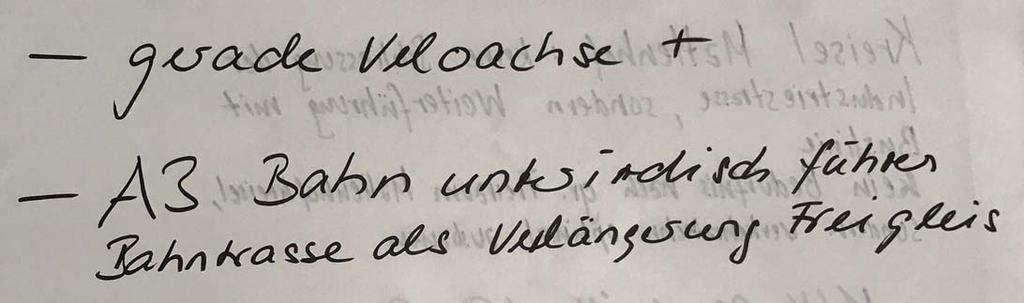 — gerade Veloachse +
— A3 Bahn unterirdisch führen
Bahntrasse als Verlängerung Freigleis